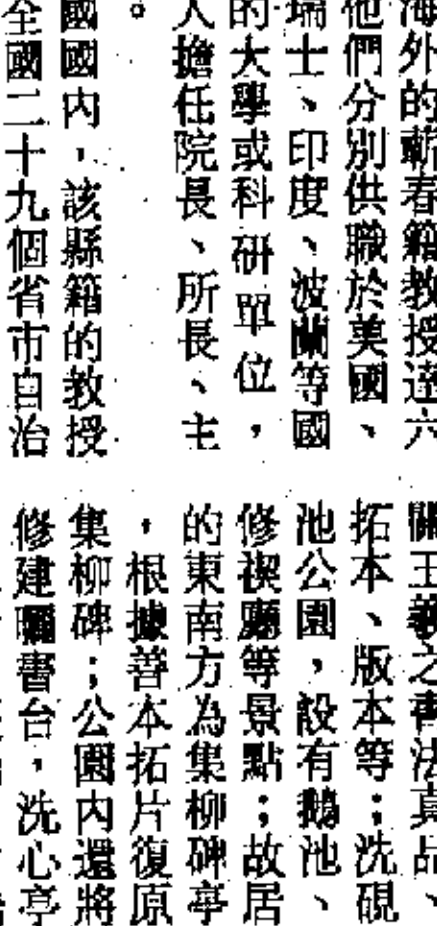 海外的蘄春籍教授達六
他們分別供職於美國、
瑞士、印度、波蘭等國
的大學或科研單位，
人擔任院長、所長、主
。
國國內，該縣籍的教授
全國二十九個省市自治
關王羲之書法真品、
拓本、版本等；洗硯
池公園，設有鵝池、
修禊廳等景點；故居
的東南方為集柳碑亭
，根據善本拓片復原
集柳碑；公園內還將
修建曬書台，洗心亭